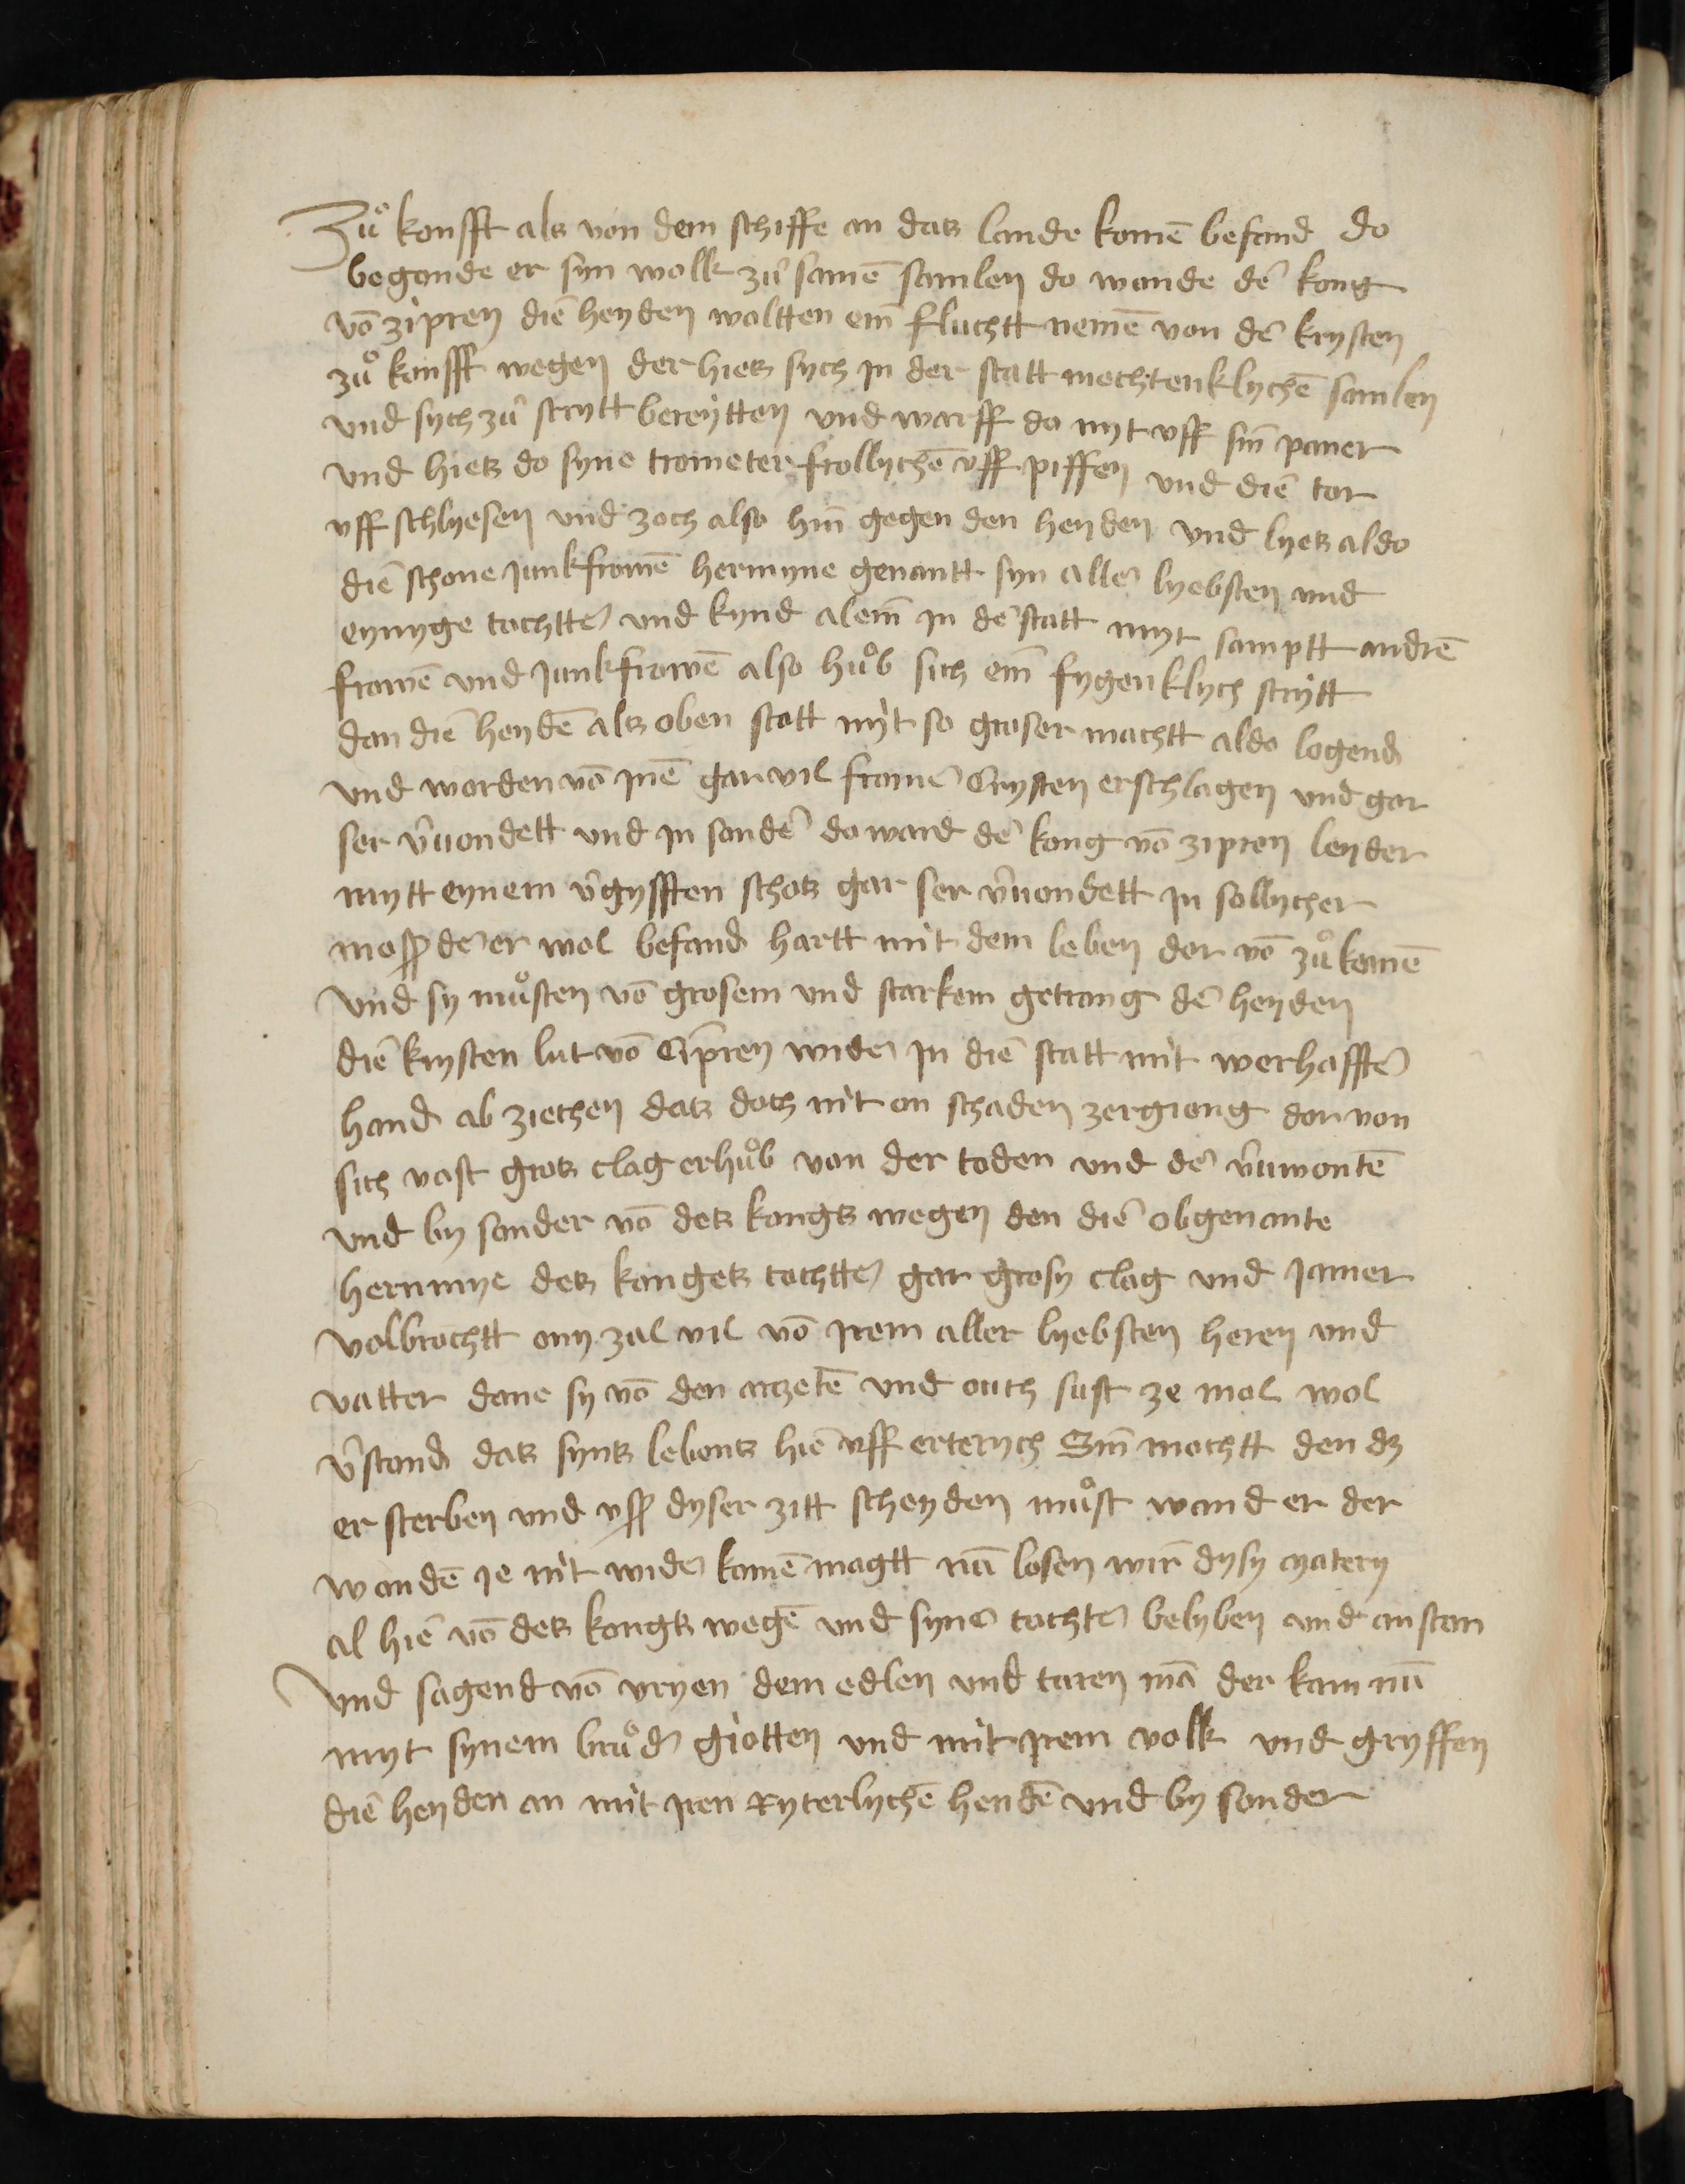 Zuͦ konfft als von dem schiffe an das lande komē befand do
begonde er syn wolk zuͦ samē samlen do wande dˀ kong
vō zipren die heyden woltten ein fluchtt nemē von dˀ krysten
zuͦ konfft wegen der hies sych jn der statt mechtenklychē samlen
vnd sych zuͦ strytt bereytten vnd warff do myt vff sin paner
vnd hies do syne trometer frollychē vff piffen vnd die tor
vff schlyesen vnd zoch also hin gegen den heyden vnd lyes aldo
die schone junkfrowē hermyne genantt syn allˀ lyebsten vnd
eynyge tochttˀ vnd kynd alein jn dˀ statt myt samptt andrē
frowē vnd junkfrowē also huͦb sich ein fygenklych strytt
dan die heydē als oben statt myt so groser machtt aldo logend
vnd worden vō jnē gar vil fromˀ Crysten erschlagen vnd gar
ser vˀwondett vnd jn sondˀ do ward dˀ kong vō zipren leyder
mytt eynem vˀgyfften schos gar ser vˀwondett jn sollycher
moß dˀ er wol befand hartt mit dem leben dor vō zuͦ komē
vnd sy muͦsten vō grosem vnd starkem getrang dˀ heyden
die krysten lut vō Cipren widˀ jn die statt mit werhafftˀ
hand ab ziechen das doch nit on schaden zergiong dor von
sich vast gros clag erhuͦb von der toden vnd dˀ vˀuwontē
vnd by sonder vō des kongs wegen den die obgenante
hermmye des konges tochttˀ gar grosy clag vnd jamer
volbrochtt ony zal vil vō jrem aller lyebsten heren vnd
vatter dane sy vō den arzetē vnd ouch sust ze mol wol
vˀstond das syns lebens hie vff erterych Sin mochtt den dz
er sterben vnd vß dyser zitt scheyden muͦst wand er der
wondē je nit widˀ komē magtt nū losen wir dysy matery
al hie vō des kongs wegē vnd synˀ tochtˀ belyben vnd anstan
vnd sagend vō vryen dem edlen vnd turen mā der kam nū
myt synem bruͦdˀ giotten vnd mit jrem volk vnd gryffen
die heyden an mit jren Ryterlychē hendē vnd by sonder